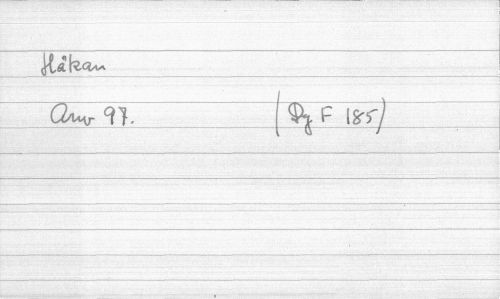 Håkan
Arv 97. (Dg F 185)